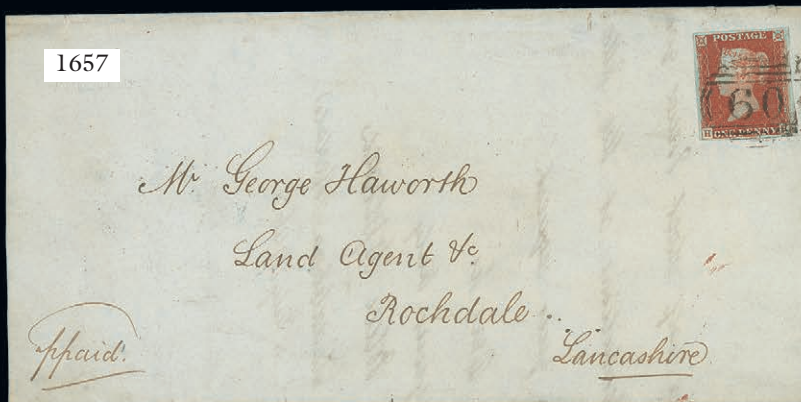 1657
POSTAGE
60
H ONE PENNY
Mr. George Haworth
Land Agent &c.
Rochdale
Lancashire
ppaid.